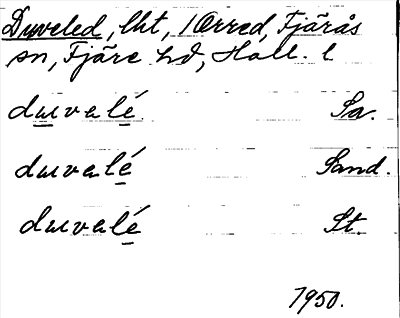 Duveled, lht, 1 Ørred, Fjärås
sn, Fjäre hd, Hall. l
duvalé. Sa.
duvalé Sand.
duvalé St.
1950.